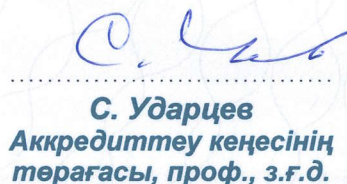 С. Ударцев
Аккредиттеу кеңесінің
төрағасы, проф., з.ғ.д.